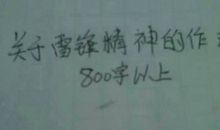 关于雷锋精神的作
800字以上